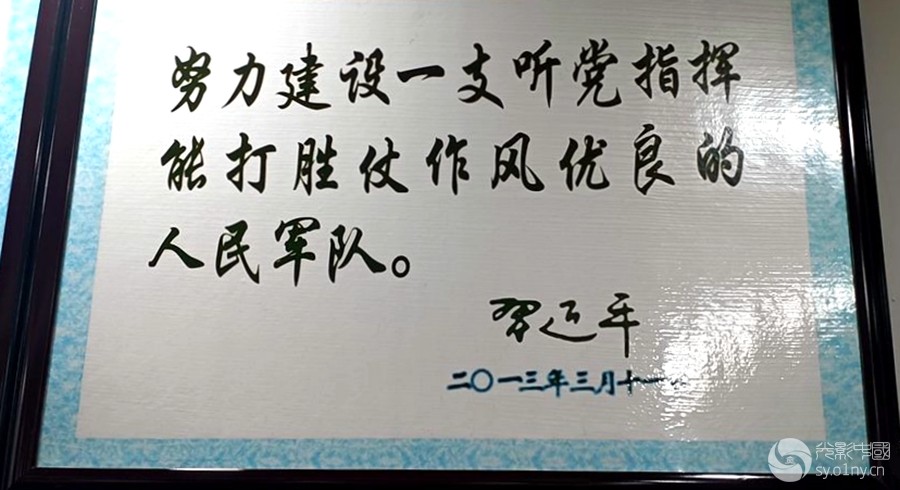 努力建设一支听党指挥
能打胜仗作风优良的
人民军队。
习近平
二〇一三年三月十一
光影中國
sy.01ny.cn